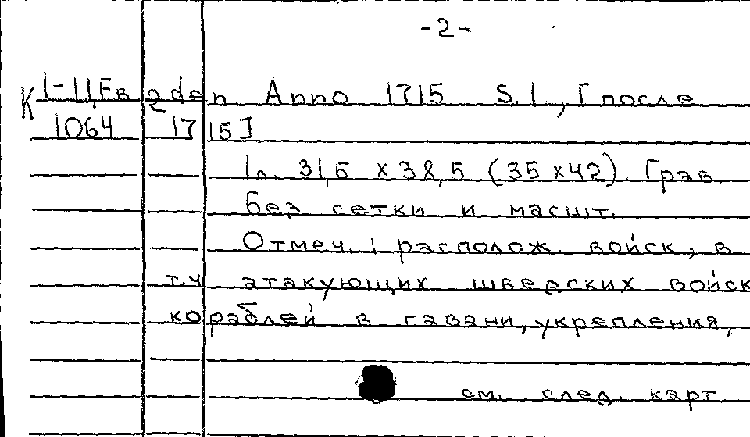 -2-
К 1-11 Fa den Anno 1715 S.l., [после
1064 1715]
1 л. 31,5 x 38,5 (35 x 42). Грав.
Без сетки и масшт.
Отмеч.: располож. войск, в
т.ч. атакующих шведских войск
кораблей в гавани, укрепления,
см. след. карт